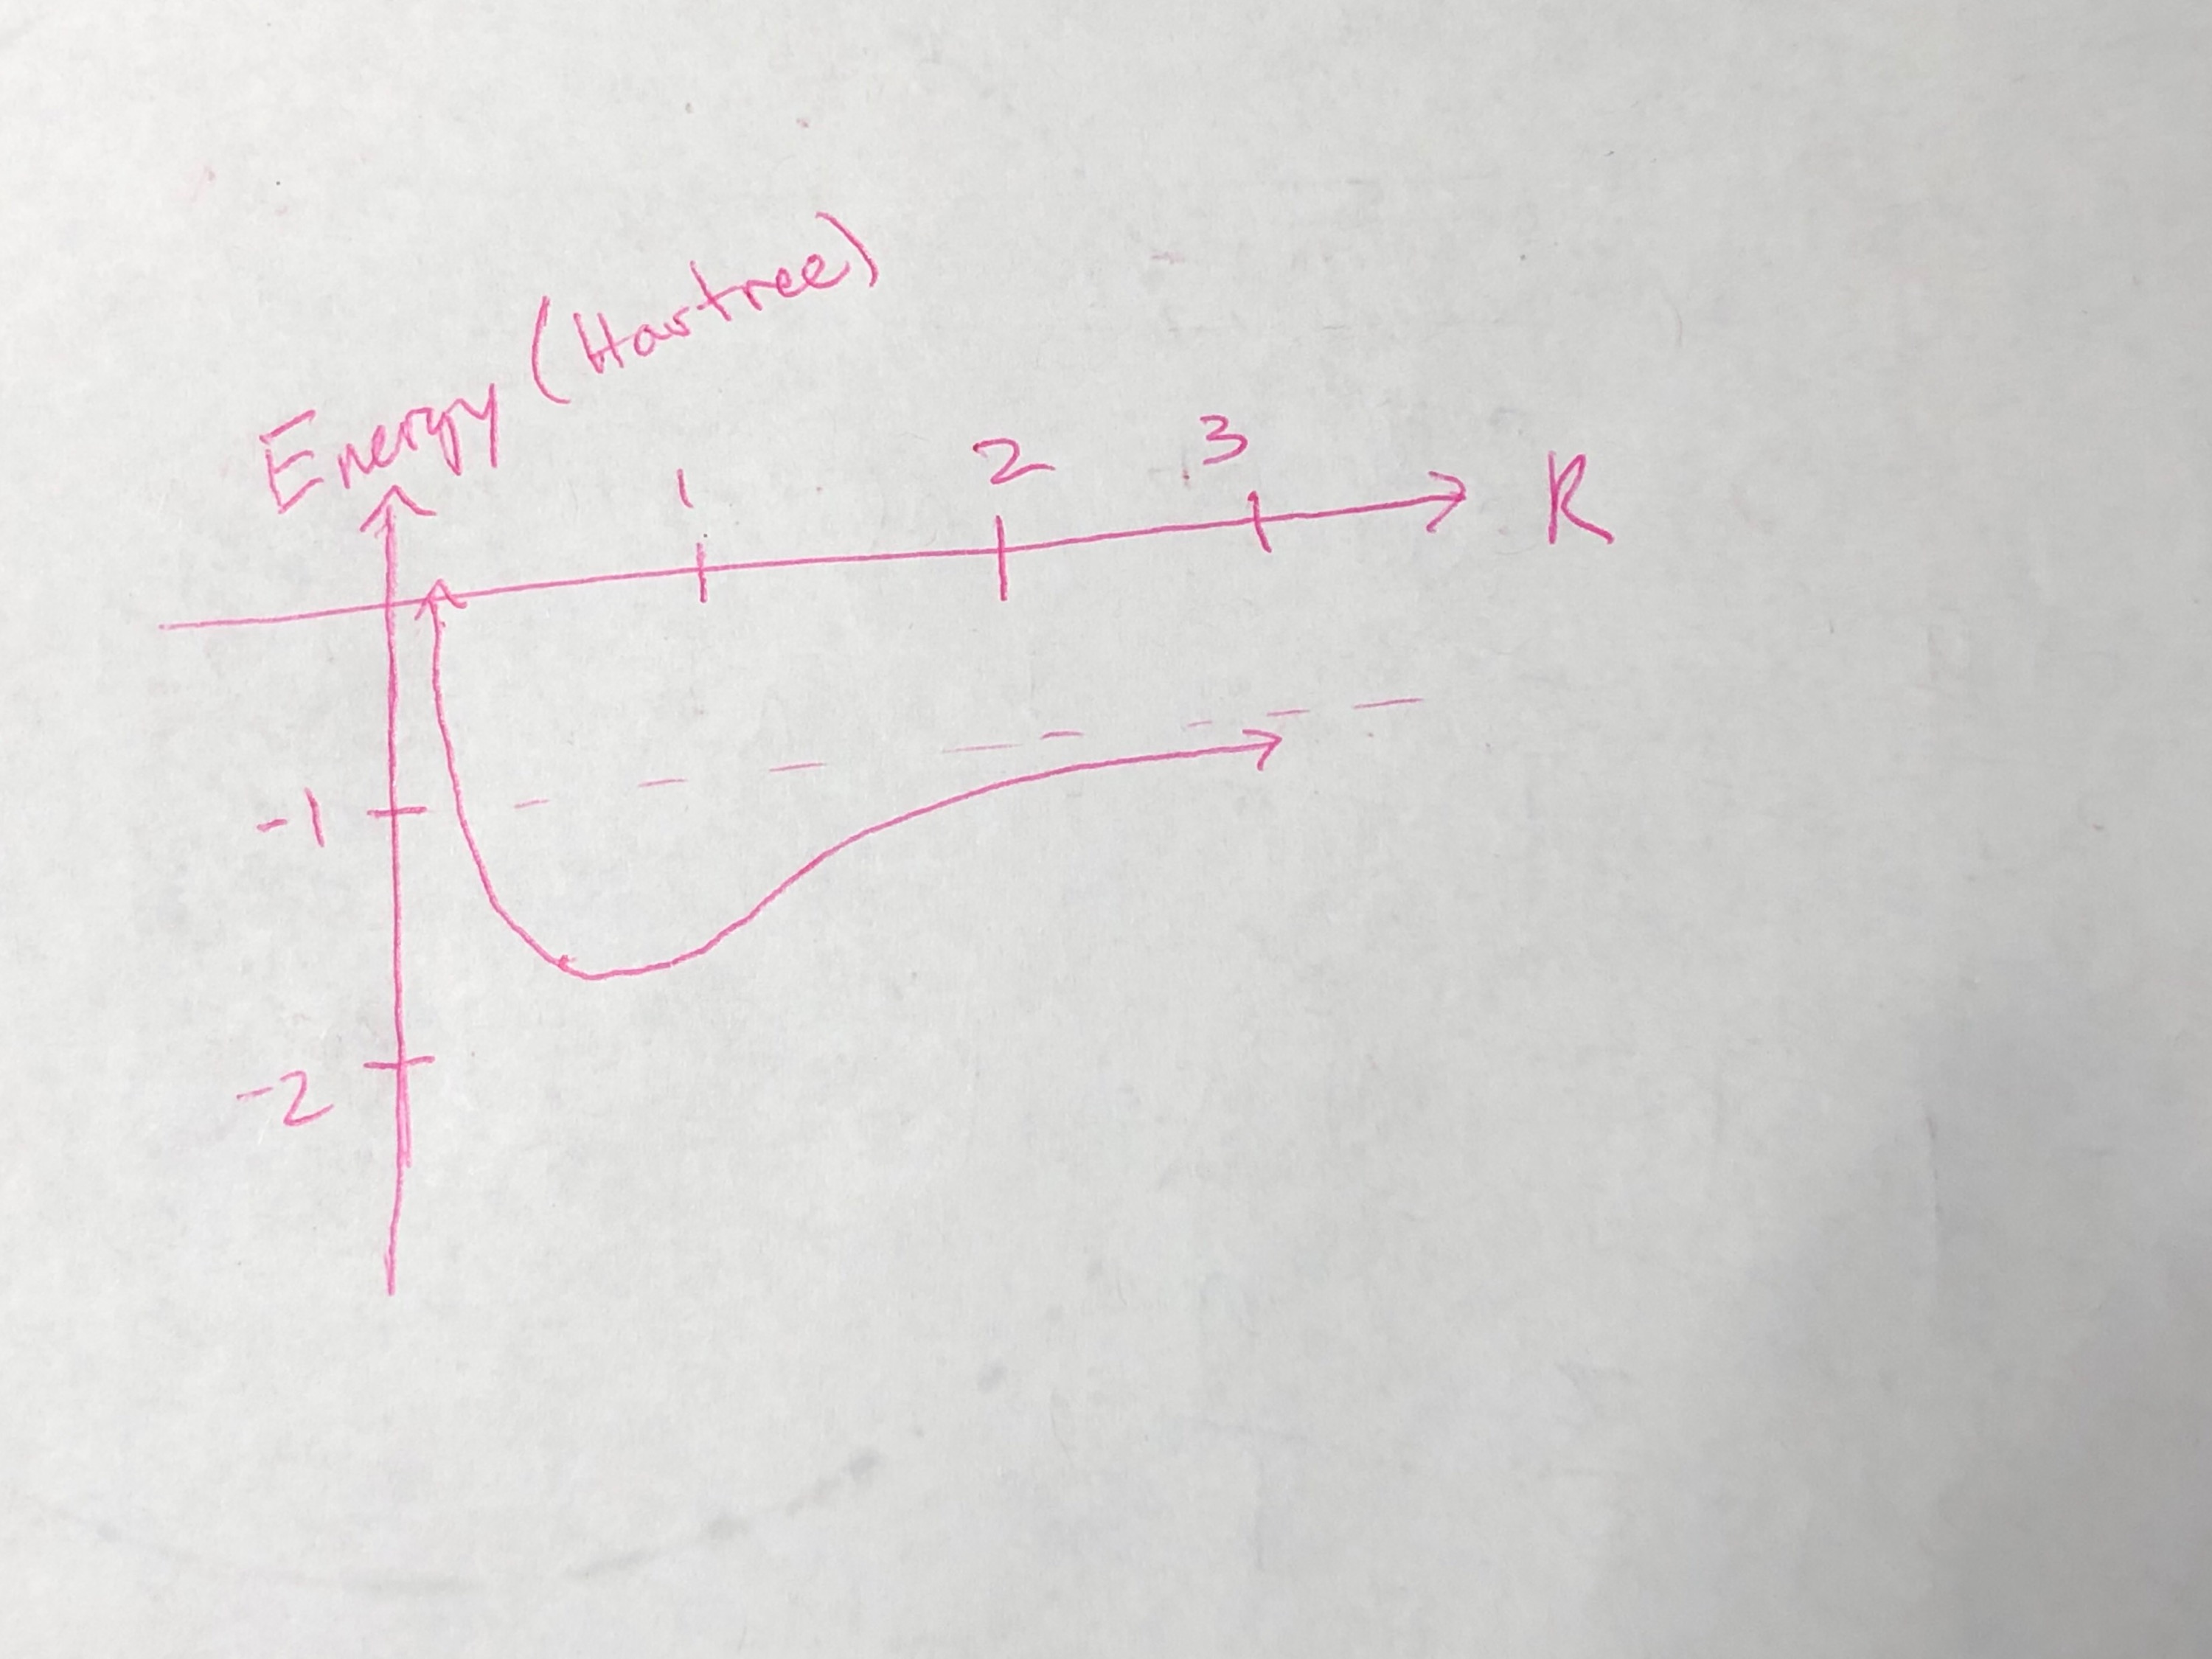 Energy (Hartree)
1 2 3 R
-1
-2